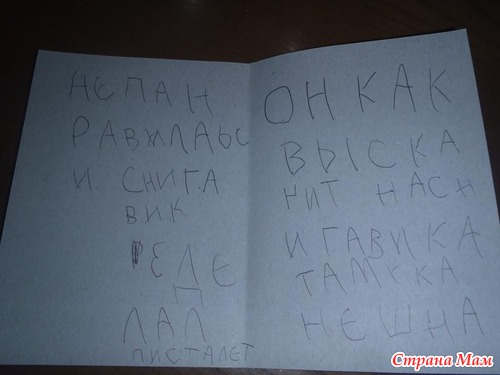 НЕПАН
РАВИЛАЬС
И СНИГА
ВИК
ЕДЕ
ЛАЛ
ПИСТАЛЕТ
ОН КАК
ВЫСКА
НИТ НАСН
ИГАВИКА
ТАМУКА
НЕШНА
Страна Мам